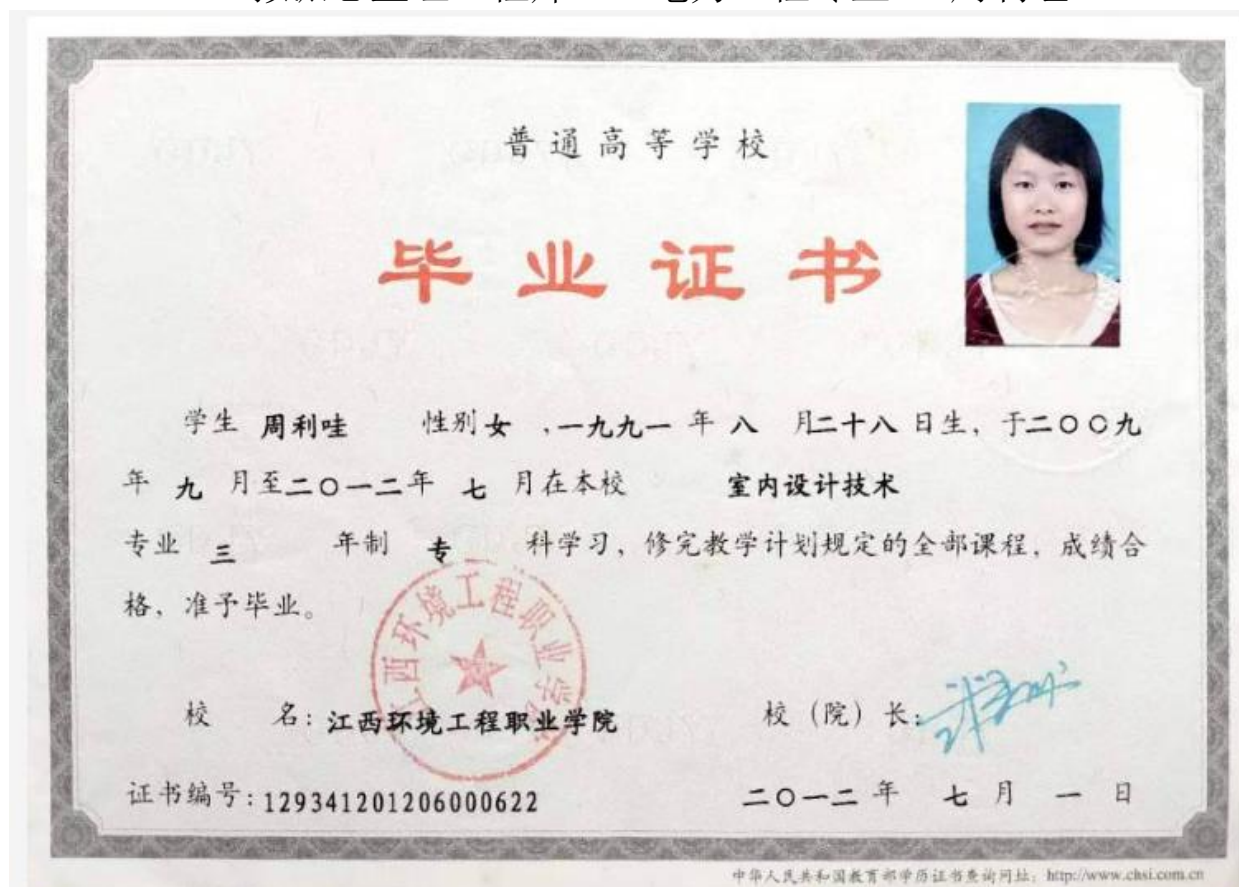 普通高等学校
毕业证书
学生 周利哇 性别 女 ，一九九一 年 八 月二十八 日生，于二〇〇九
年 九 月至二〇一二年 七 月在本校 室内设计技术
专业 三 年制 专 科学习，修完教学计划规定的全部课程，成绩合
格，准予毕业。
江西环境工程职业学院
校 名：江西环境工程职业学院 校（院）长：
证书编号：129341201206000622 二〇一二 年 七 月 一 日
中华人民共和国教育部学历证书查询网址：http://www.chsi.com.cn